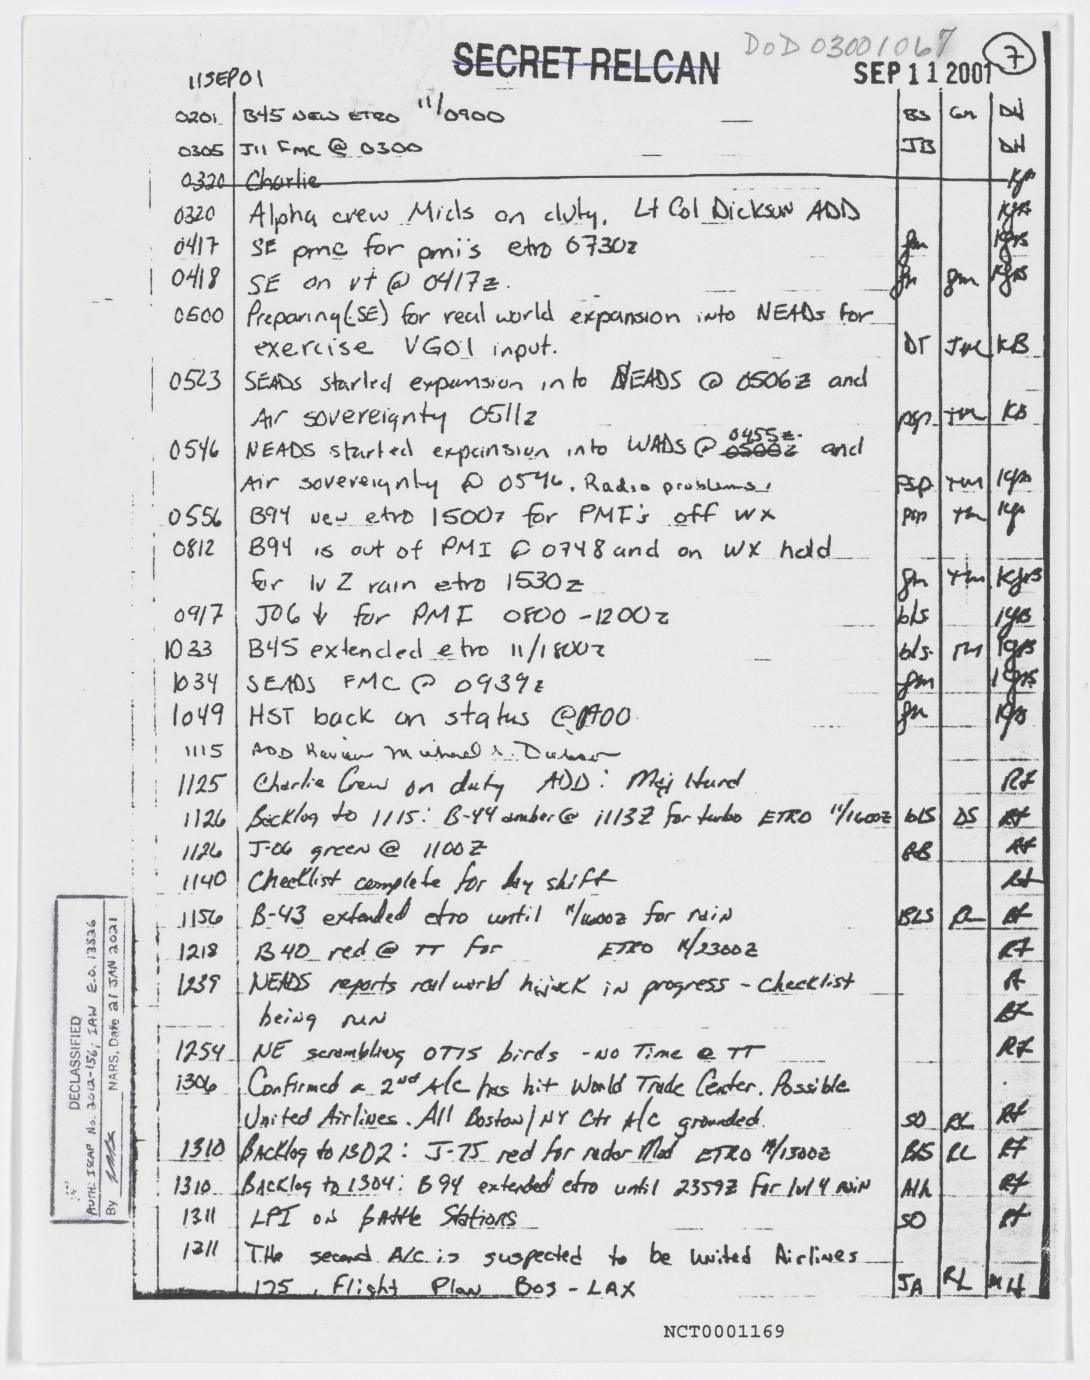 DoD 03001067
SECRET RELCAN
SEP 11 2001
7
11SEP01
0201 B45 NEW ETRO 11/0900 BS Gm DH
0305 J11 FMC @ 0300 JB DH
0320 Charlie
0320 Alpha crew Mids on duty. Lt Col Dickson ADD
0417 SE pmc for pmi's etro 0730z
0418 SE on vt @ 0417z. gm
0500 Preparing (SE) for real world expansion into NEADs for
exercise VG01 input. DT Jm KB
0523 SEADs started expansion into NEADS @ 0506z and
Air sovereignty 0511z psp TM KB
0455z
0546 NEADS started expansion into WADS @ 0500z and
Air sovereignty @ 0546. Radio problems. psp TM
0556 B94 new etro 1500z for PMI's off WX psp TM
0812 B94 is out of PMI @ 0748 and on WX hold
for lv 2 rain etro 1530z gm TM
0917 J06 ↓ for PMI 0800-1200z bls
1033 B45 extended etro 11/1800z bls
1034 SEADS FMC @ 0939z gm
1049 HST back on status @ 0900 gm
1115 ADD Review Michael
1125 Charlie Crew on duty ADD: Maj Hurd RF
1126 Backlog to 1115: B-44 amber @ 1113Z for turbo ETRO 11/1600z bls DS RF
1126 J-06 green @ 1100Z BB RF
1140 Checklist complete for day shift RF
1156 B-43 extended etro until 11/1600z for rain BLS RL RF
1218 B40 red @ TT for ETRO 11/2300Z RF
1239 NEADS reports real world hijack in progress - Checklist
being run RF
1254 NE scrambling OTIS birds - NO Time @ TT RF
1306 Confirmed a 2nd A/C has hit World Trade Center. Possible
United Airlines. All Boston/NY Ctr A/C grounded. SO RL RF
1310 Backlog to 1302: J-75 red for radar Mod ETRO 11/1500z BLS RL RF
1310 Backlog to 1304: B94 extended etro until 2359Z for lvl 4 rain RF
1311 LFI on battle Stations SO RF
1311 The second A/C is suspected to be United Airlines
175, Flight Plan Bos - LAX JA RL MH
DECLASSIFIED
AUTH: ISCAP No. 2012-156; IAW E.O. 13526
By NARS, Date 21 JAN 2021
NCT0001169